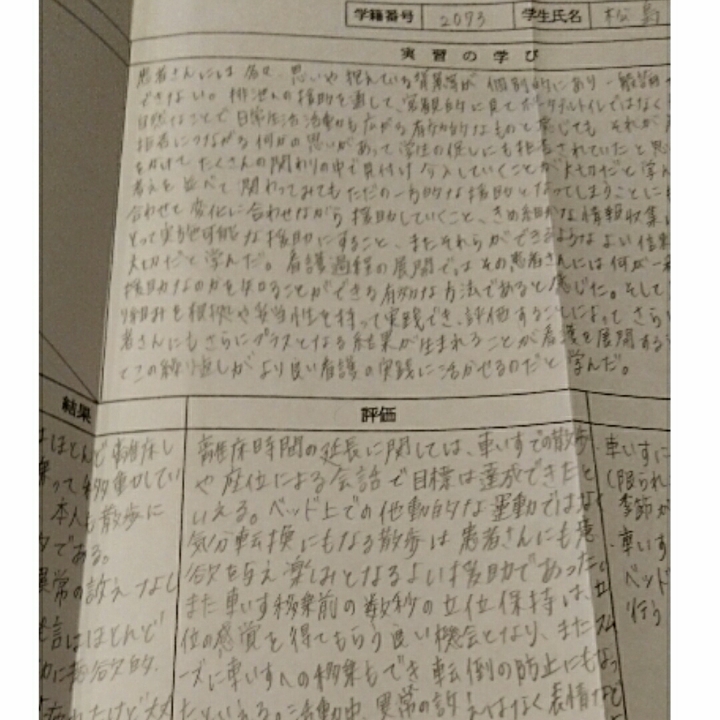 学籍番号 2093 学生氏名 松島
実習の学び
患者さんには各々、思いや抱えている背景等が個別的にあり一般論
できない。排泄の援助を通して、客観的に見てポータブルトイレではなく
自然なことで日常生活活動も広がる有効的なものと感じても、それが
拒否につながる何かの思いがあって学生の促しにも拒否されていたと思
をかけてたくさんの関わりの中で見付け介入していくことが大切だと学ん
考えを並べて関わってみてもただの一方的な援助となってしまうことに
合わせて変化に合わせながら援助していくこと、きめ細かな情報収集
とって実施可能な援助にすること、またそれらができるようなよい信
大切だと学んだ。看護過程の展開ではその患者さんには何が一
援助なのかを知ることができる有効な方法であると感じた。そして
り組みを根拠や妥当性を持って実践でき、評価することによってさら
者さんにもさらにプラスとなる結果が生まれることが看護を展開する
とこの繰り返しがより良い看護の実践に活かせるのだと学んだ。
結果
ほとんど離床し
乗って移動してい
本人も散歩に
である。
異常の訴えなし
発言はほとんど
意欲的
評価
離床時間の延長に関しては、車いすでの散歩
や座位による会話で目標は達成できたと
いえる。ベッド上での他動的な運動ではなく
気分転換にもなる散歩は患者さんにも意
欲を与え楽しみとなるよい援助であった。
また車いす移乗前の数秒の立位保持は、立
位の感覚を得てもらう良い機会となり、またスム
ーズに車いすへの移乗もでき転倒の防止にもなっ
たといえる。活動中、異常の訴えはなく表情など
車いすに
(限られ
季節が
・車いす
ベッド
行う